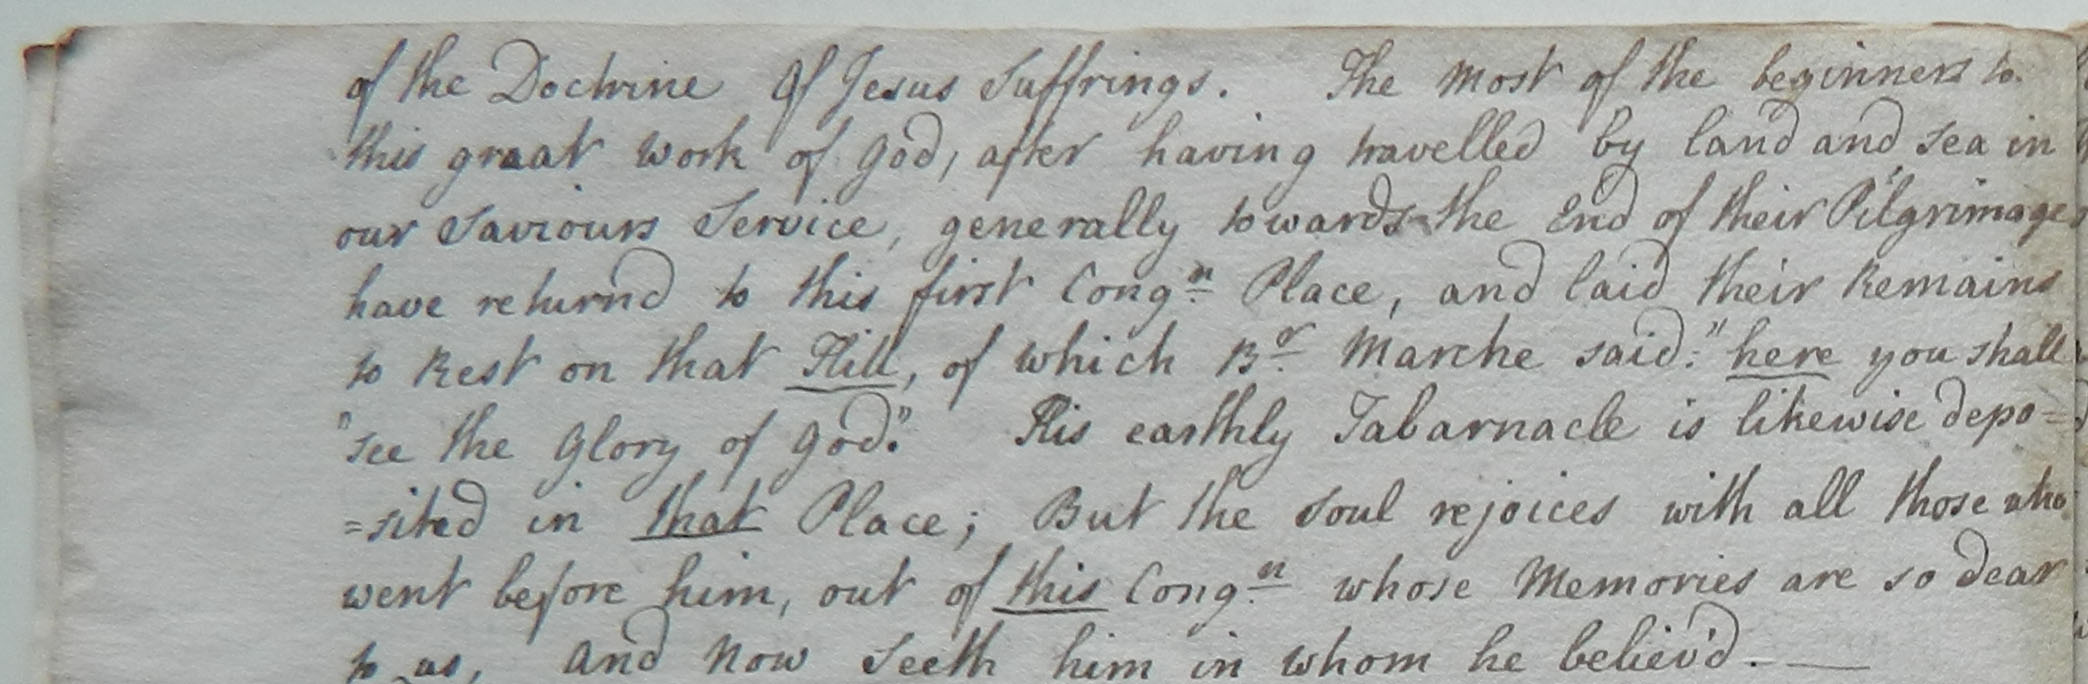 of the Doctrine Of Jesus Suffrings. The most of the beginners to
this graat work of God, after having travelled by land and sea in
our Saviours Service, generally towards the End of their Pilgrimage
have returnd to this first Congn. Place, and laid their Remains
to Rest on that Hill, of which Br. Marche said: "here you shall
"see the Glory of God." His earthly Tabarnacle is likewise depo=
=sited in that Place; But the soul rejoices with all those who
went before him, out of this Congn. whose Memories are so dear
to us, and now seeth him in whom he believ'd. —